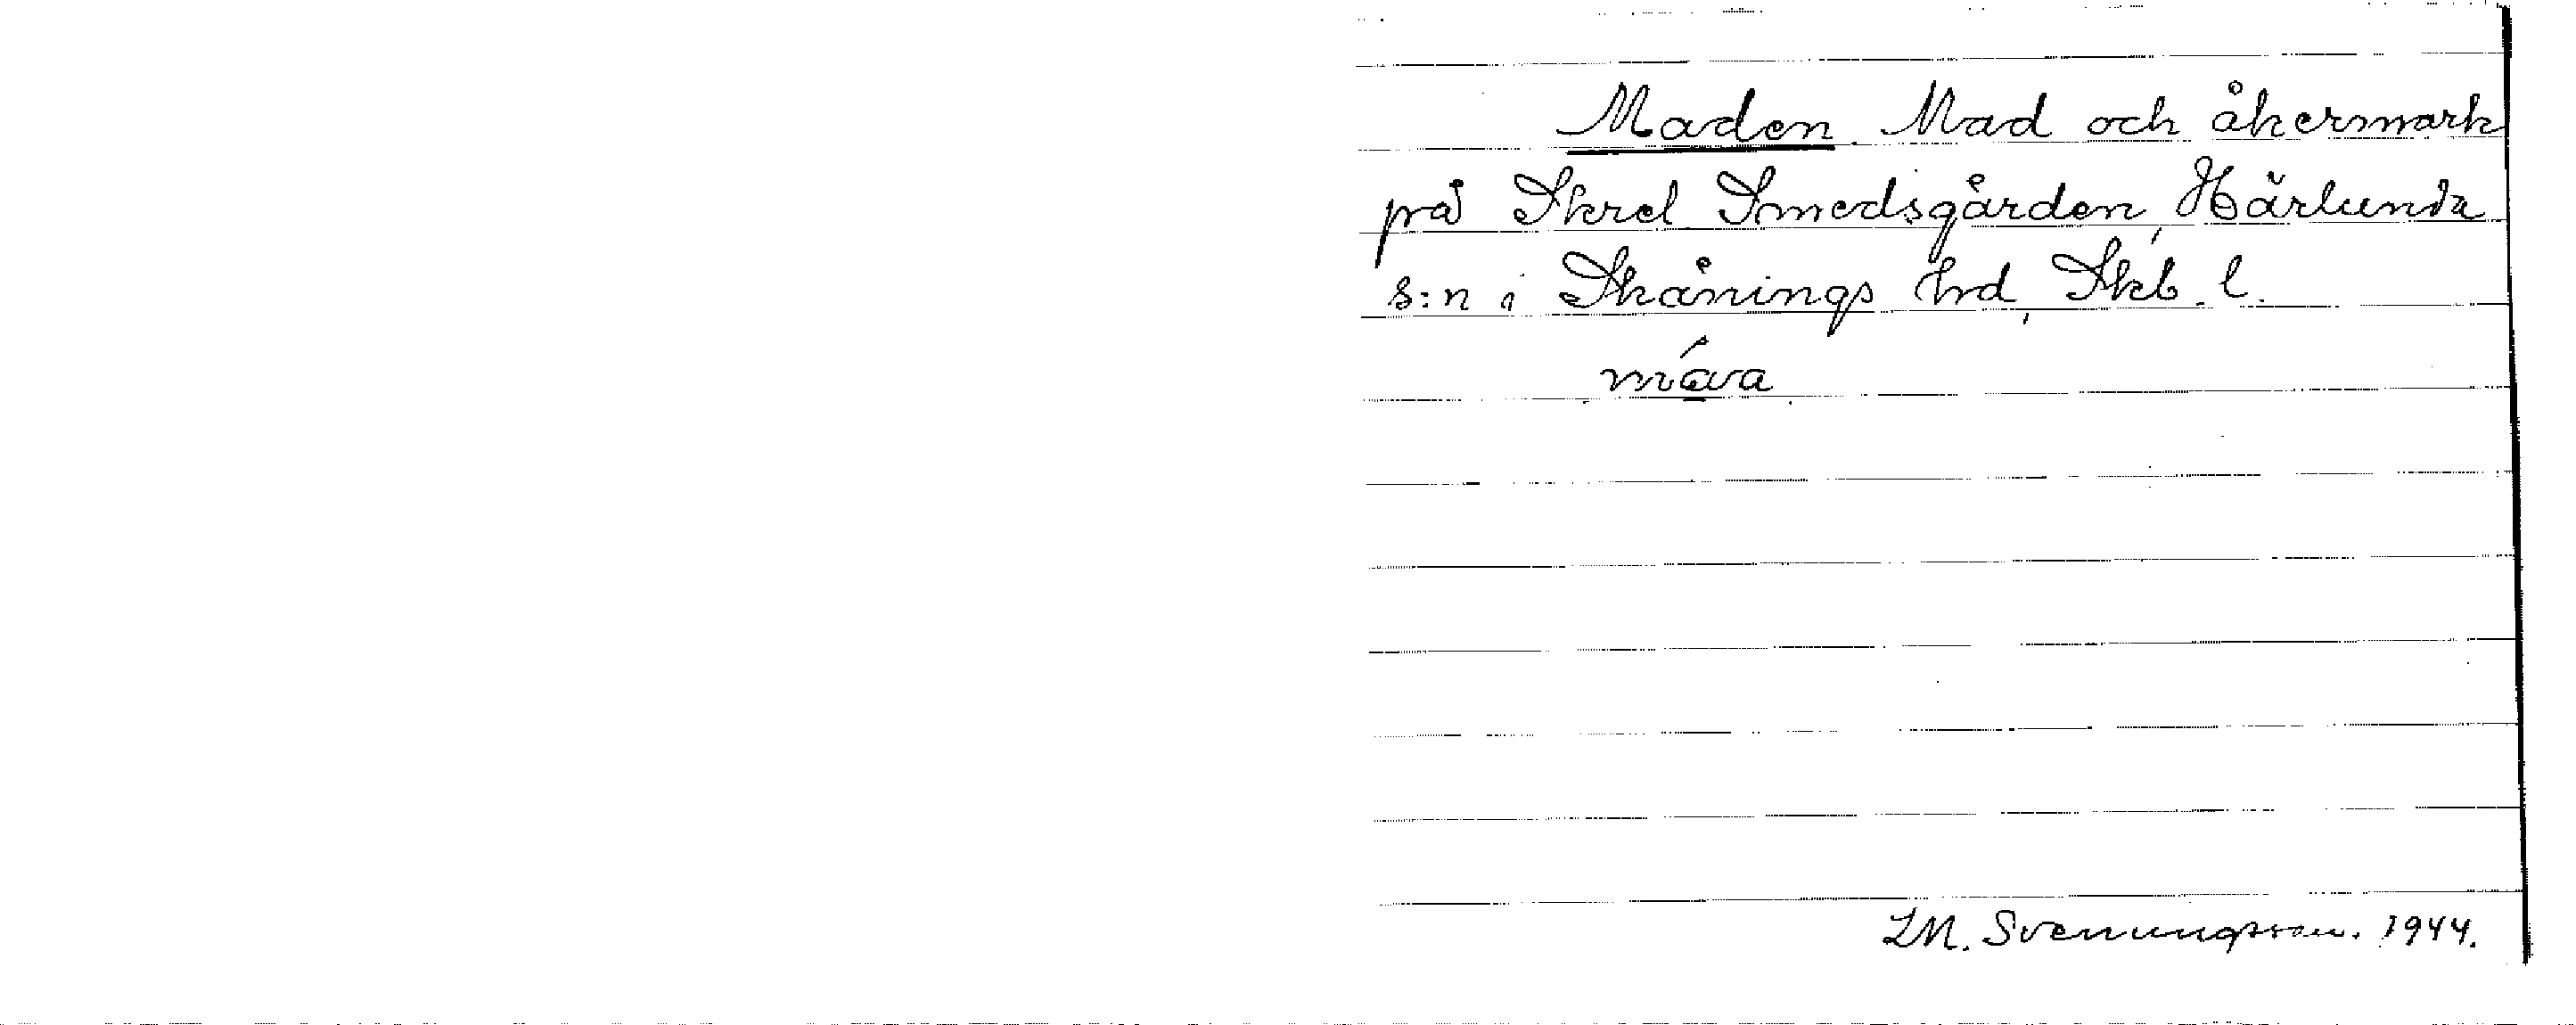 Maden. Mad och åkermark
på Skrel Smedsgården, Härlunda
s:n i Skånings hd, Skb. l.
máva
I.M. Svenungsson. 1944.